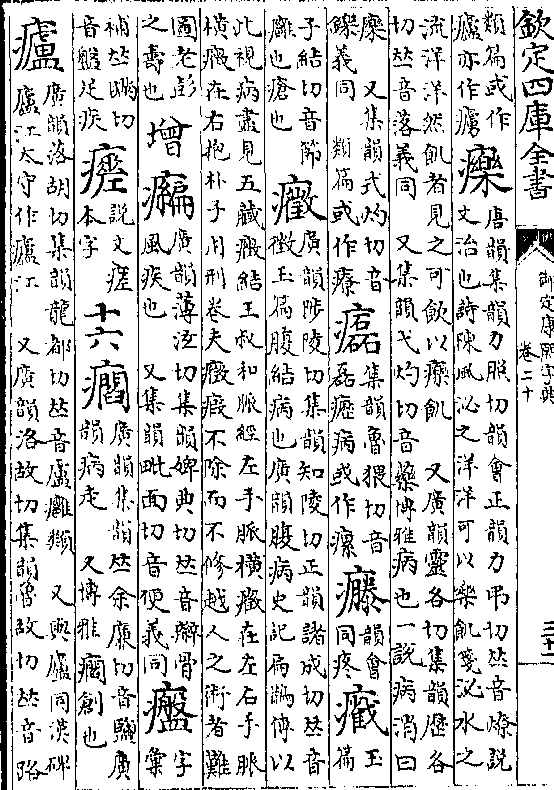 欽定四庫全書
御定康熙字典
卷二十
類篇或作
亦作
𤻲
唐韻集韻力照切韻會正韻力弔切𠀤音燎說
文治也詩陳風泌之洋洋可以樂飢箋泌水之
流洋洋然飢者見之可飲以𤻲飢 又廣韻靈各切集韻歷各
切𠀤音落義同 又集韻弋灼切音藥博雅病也一說病消曰
𤻲 又集韻式灼切音
鑠義同 類篇或作療
集韻魯猥切音
磊癧病或作
韻會
同疼
玉
篇
子結切音節
癰也瘡也
癥
廣韻陟陵切集韻知陵切正韻諸成切𠀤音
徵玉篇腹結病也廣韻腹病史記扁鵲傳以
此視病盡見五臟癥結王叔和脈經左手脈橫癥在左右手脈
橫癥在右抱朴子用刑卷夫癥瘕不除而不修越人之術者難
圖老彭
之壽也
增
廣韻薄泫切集韻婢典切𠀤音辮骨
風疾也 又集韻毗面切音便義同
字
彙
補𠀤瞞切
音盤足疾
說文瘥
本字
十六
廣韻集韻𠀤余廉切音鹽廣
韻病走 又博雅創也
廣韻落胡切集韻龍都切𠀤音盧癰癩 又與廬同漢碑
廬江太守作江 又廣韻洛故切集韻魯故切𠀤音路